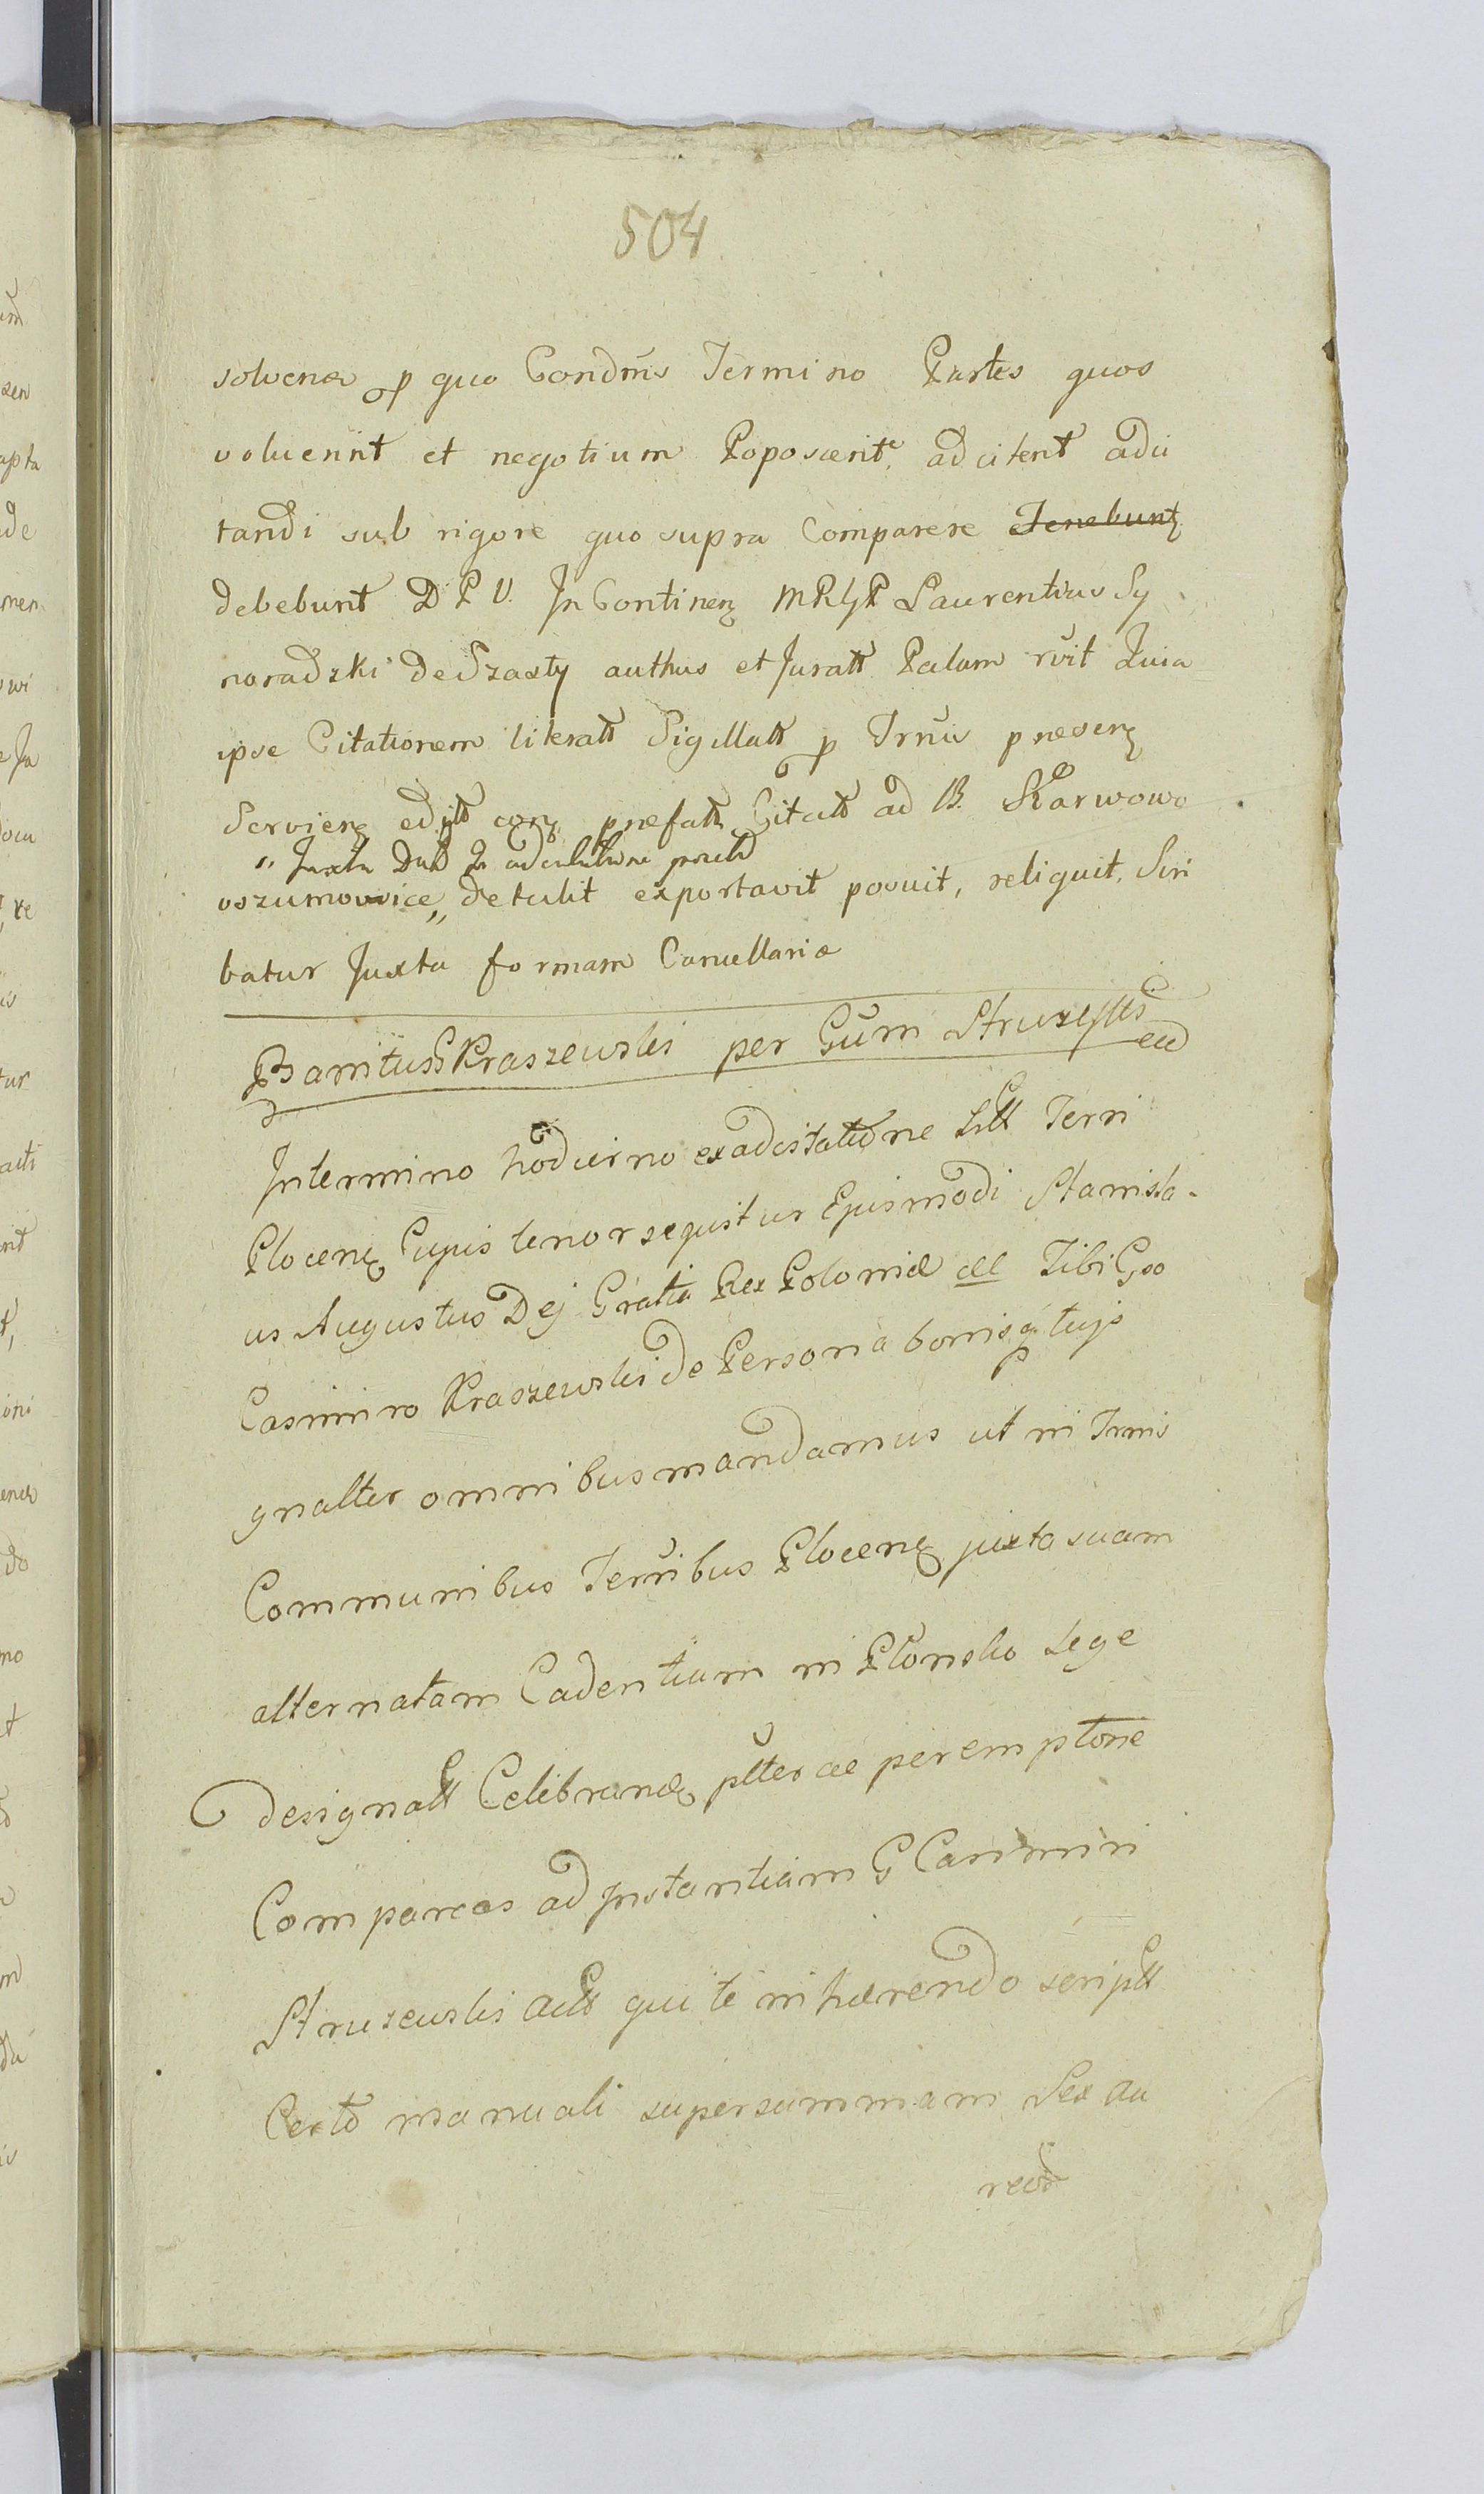 504
solvena p quo Condnis Termino Partes quos
voluerint et negotium Poposcerit adcitent adci
tandi sub rigore quo supra Comparere Tenebunt
debebunt D P V. In Continen Laurentius Sy
noradzki de Szasty authus et Juratt Palam rvit Quia
ipse Citationem literatt Sigillatt p Trnu presen
Servien edytt con prefatt Citatt ad B. Karwowo
„ Juxta
oszumowice „ detulit exportavit posuit, reliquit, Scri
batur Juxta formam Cancellariæ
Banitus G Kraszewski per Gūm
Intermino hodierno exadcitatione Litt Terri
Plocen Cujus tenor sequitur Ejusmodi Stanisla-
us Augustus Dej Gratia Rex Poloniæ etc Tibi Gso
Casimiro Kraszewski de Persona bonisq tujs
gnalter omnibus mandamus ut in Trnis
Communibus Terribus Plocen juxta suam
alternatam Cadentiam in Plonsko Lege
designatt Celebrand ptter ac peremptorie
Compareas ad Instantiam G Casimiri
Struzewski actt qui te inhærendo scriptt
Certo manuali super summam Sex au
reor